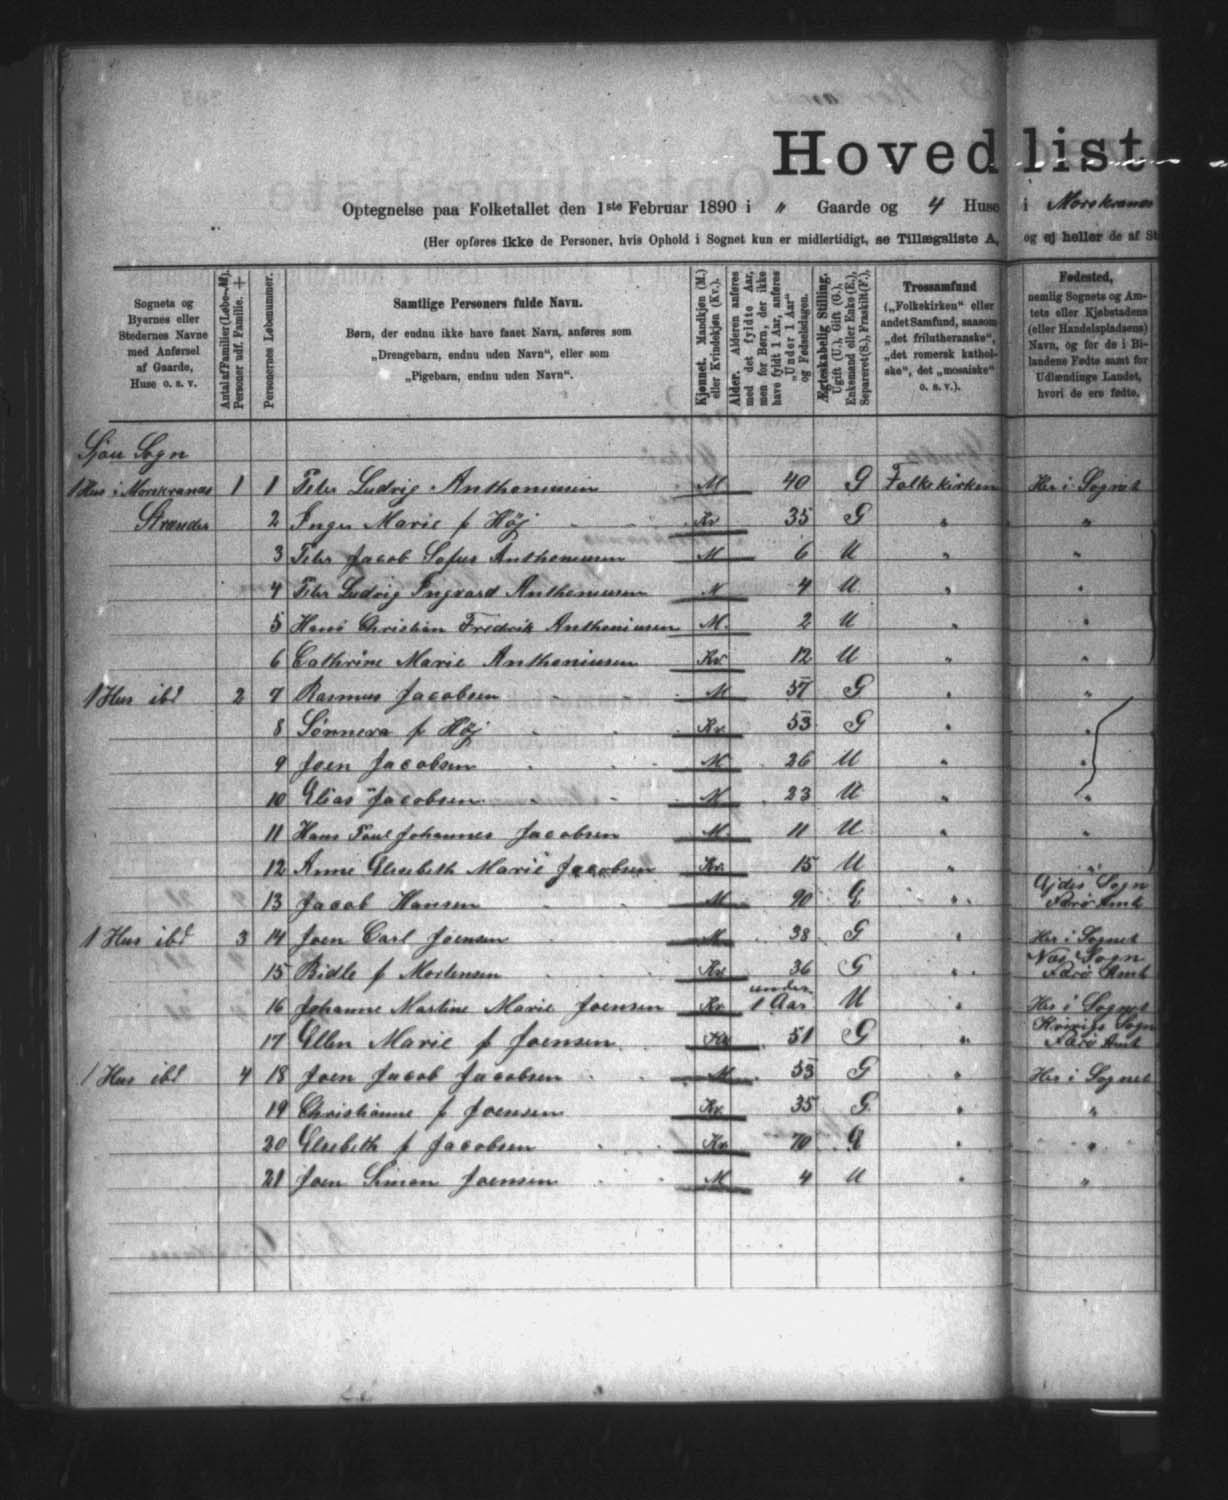 Hovedlist
Optegnelse paa Folketallet den 1ste Februar 1890 i " Gaarde og 4 Huse i Morskranes
(Her opføres ikke de Personer, hvis Ophold i Sognet kun er midlertidigt, se Tillægsliste A, og ej heller de af St
Sognets og Byernes eller Stedernes Navne med Anførsel af Gaarde, Huse o. s. v.
Antal af Familier (Løbe-Nr.). Personer udf. Familie. +
Personernes Løbenummer.
Samtlige Personers fulde Navn.
Børn, der endnu ikke have faaet Navn, anføres som
„Drengebarn, endnu uden Navn", eller som
„Pigebarn, endnu uden Navn".
Kjønnet. Mandkjøn (M.) eller Kvindekjøn (Kv.).
Alder. Alderen anføres med det fyldte Aar, men for Børn, der ikke have fyldt 1 Aar, anføres „Under 1 Aar" og Fødselsdagen.
Ægteskabelig Stilling. Ugift (U.), Gift (G.), Enkemand eller Enke (E.), Separeret (S.), Fraskilt (F.).
Trossamfund („Folkekirken" eller andet Samfund, saasom „det frilutheranske", „det romersk katholske", det „mosaiske" o. s. v.).
Fødested, nemlig Sognets og Amtets eller Kjøbstadens (eller Handelspladsens) Navn, og for de i Bilandene Fødte samt for Udlændinge Landet, hvori de ere fødte.
Sjøu Sogn
1 Hus i Morskranes 1 1 Peter Ludvig Anthoniusen M 40 G Folkekirken Her i Sognet
Strænder 2 Inger Marie f Høj Kv 35 G " "
3 Peter Jacob Sofus Anthoniusen M 6 U " "
4 Peter Ludvig Ingvard Anthoniusen M 4 U " "
5 Hans Christian Fredrik Anthoniusen M. 2 U " "
6 Cathrine Marie Anthoniusen Kv 12 U " "
1 Hus ibd 2 7 Rasmus Jacobsen M 57 G " "
8 Sønneva f Høj Kv. 53 G " "
9 Joen Jacobsen M 26 U " "
10 Elias Jacobsen M 23 U " "
11 Hans Poul Johannes Jacobsen M. 11 U " "
12 Anne Elsebeth Marie Jacobsen Kv. 15 U " "
13 Jacob Hansen M 90 E " Ejdes Sogn Færø Amt
1 Hus ibd 3 14 Joen Carl Joensen M 38 G " Her i Sognet
15 Bidle f Mortensen Kv 36 G " Næs Sogn Færø Amt
16 Johanne Martine Marie Joensen Kv under 1 Aar U " Her i Sognet
17 Ellen Marie f Joensen Kv 51 G " Kvivigs Sogn Færø Amt
1 Hus ibd 4 18 Joen Jacob Jacobsen M 53 G " Her i Sognet
19 Christianne f Joensen Kv. 35 G. " "
20 Elsebeth f Jacobsen Kv. 70 E " "
21 Joen Simon Joensen M 4 U " "